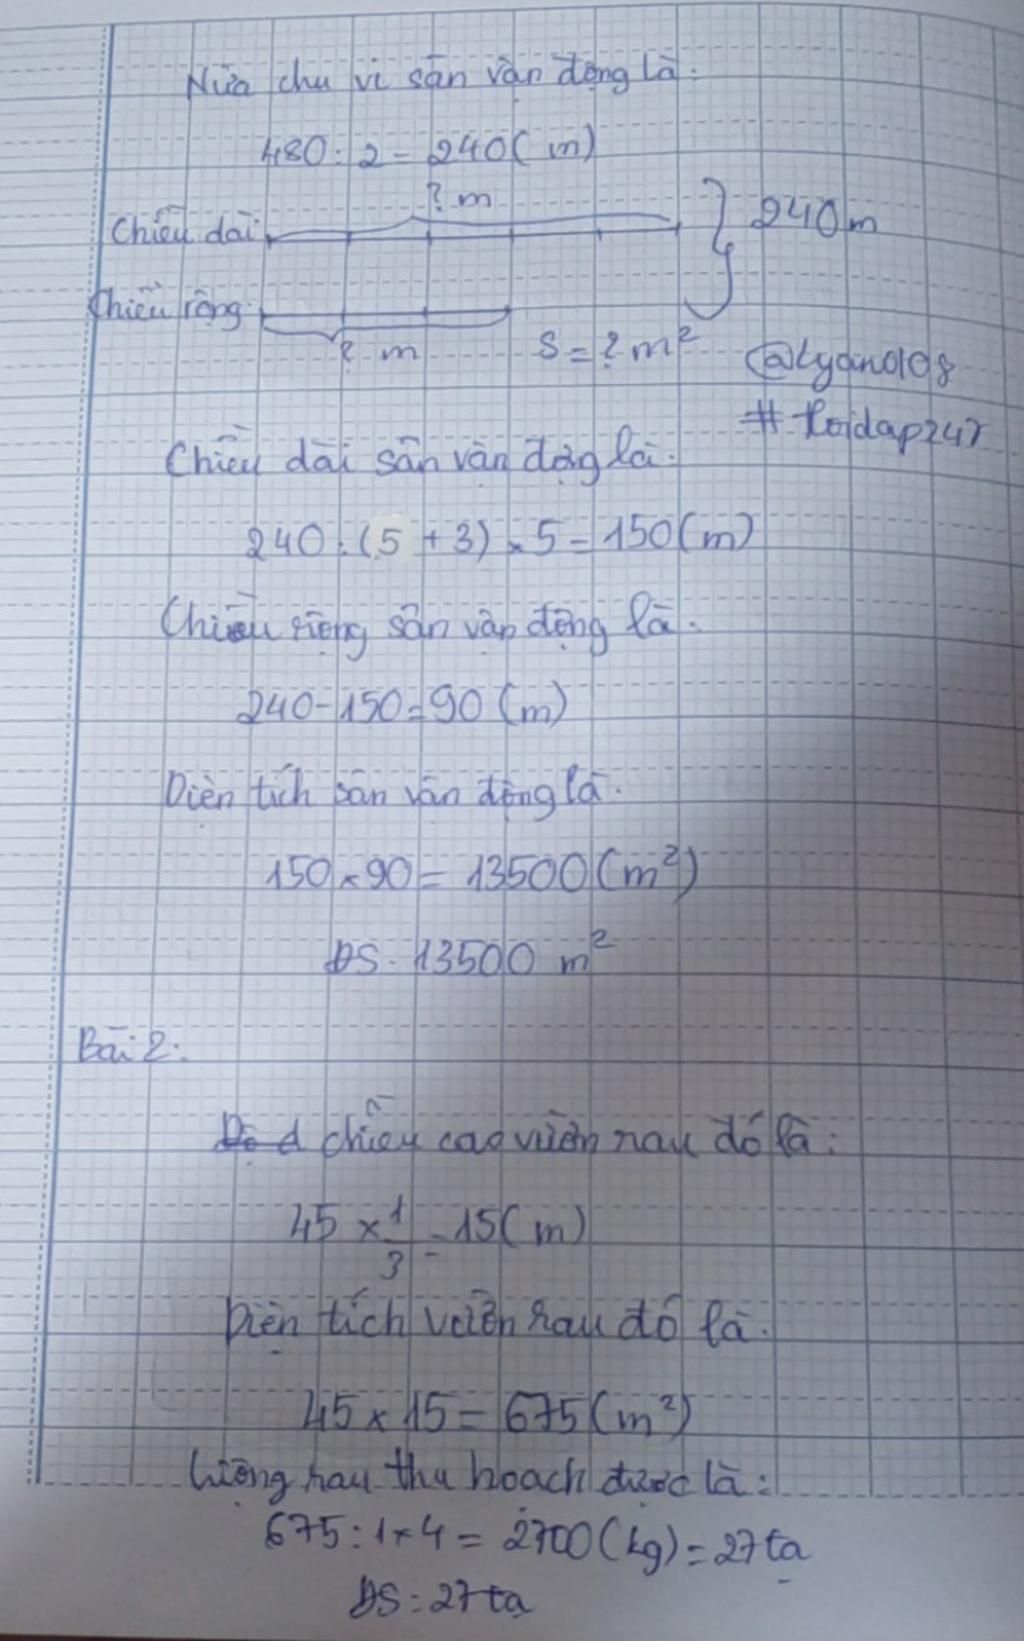 Nửa chu vi sân vận động là:
480 : 2 = 240 ( m )
? m
Chiều dài
240 m
Chiều rộng
? m
S = ? m²
@Lyano108
# hoidap247
Chiều dài sân vận động là:
240 : (5 + 3) × 5 = 150 (m)
Chiều rộng sân vận động là:
240 - 150 = 90 (m)
Diện tích sân vận động là:
150 × 90 = 13500 (m²)
ĐS: 13500 m²
Bài 2:
chiều cao vườn rau đó là:
45 × 1/3 = 15 ( m )
Diện tích vườn rau đó là:
45 × 15 = 675 (m²)
Lượng rau thu hoạch được là:
675 : 1 × 4 = 2700 (kg) = 27 tạ
ĐS : 27 tạ